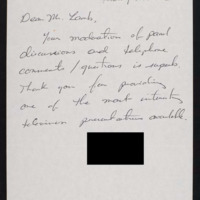 Dear Mr. Lamb,
Your moderation of panel
discussions and telephone
comments/questions is superb.
Thank you for providing
one of the most interesting
television presentations available.